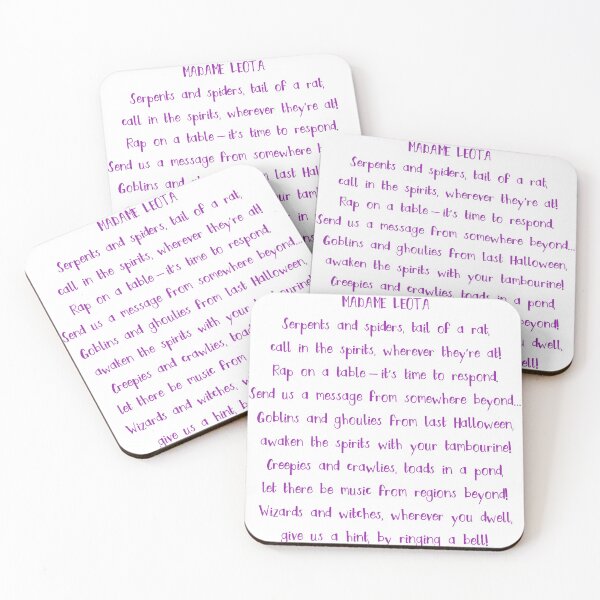 MADAME LEOTA
Serpents and spiders, tail of a rat,
call in the spirits, wherever they're at!
Rap on a table—it's time to respond,
Send us a message from somewhere
Goblins and from last
MADAME LEOTA
Serpents and spiders, tail of a rat,
call in the spirits, wherever they're at!
Rap on a table—it's time to respond,
Send us a message from somewhere beyond...
Goblins and ghoulies from last Halloween,
awaken the spirits with your tambourine!
Creepies and crawlies, toads in a pond,
beyond!
you dwell,
bell!
MADAME LEOTA
Serpents and spiders, tail of a rat,
call in the spirits, wherever they're at!
Rap on a table—it's time to respond,
Send us a message from somewhere beyond...
Goblins and ghoulies from last Halloween,
awaken the spirits with your
Creepies and crawlies,
let there be music from
Wizards and witches,
give us a hint, by
MADAME LEOTA
Serpents and spiders, tail of a rat,
call in the spirits, wherever they're at!
Rap on a table—it's time to respond,
Send us a message from somewhere beyond...
Goblins and ghoulies from last Halloween,
awaken the spirits with your tambourine!
Creepies and crawlies, toads in a pond,
let there be music from regions beyond!
Wizards and witches, wherever you dwell,
give us a hint, by ringing a bell!